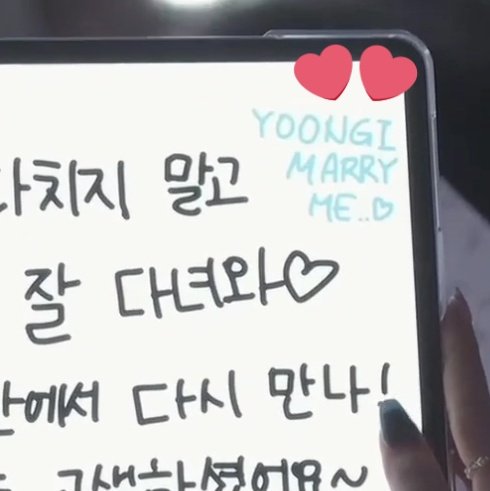 YOONGI
MARRY
ME..♡
다치지 말고
잘 다녀와♡
다시 만나!
고생하셨어요~